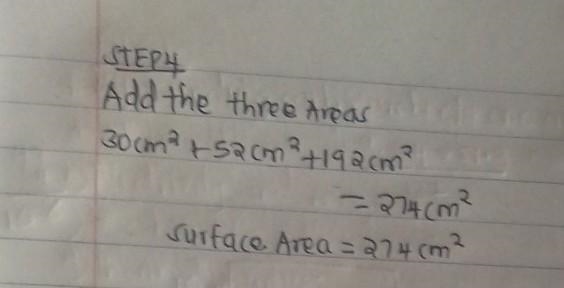 STEP4
Add the three Areas
30cm² + 52cm² + 192cm²
= 274cm²
Surface Area = 274cm²